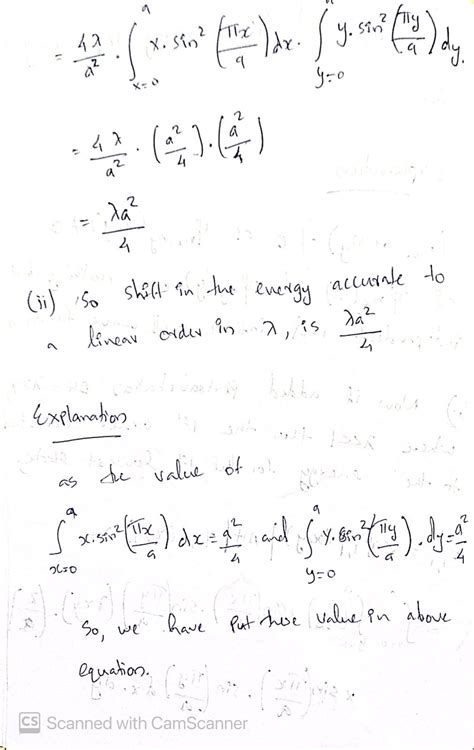 = 4λ/a² · ∫_{x=0}^{a} x. sin² (πx/a) dx · ∫_{y=0}^{a} y. sin² (πy/a) dy.
= 4λ/a² · (a²/4) · (a²/4)
= λa²/4
(ii) So shift in the energy accurate to
a linear order in λ, is λa²/4
Explanation
as the value of
∫_{x=0}^{a} x. sin² (πx/a) dx = a²/4 and ∫_{y=0}^{a} y. sin² (πy/a) . dy = a²/4
So, we have put these value in above
equation.
CS Scanned with CamScanner